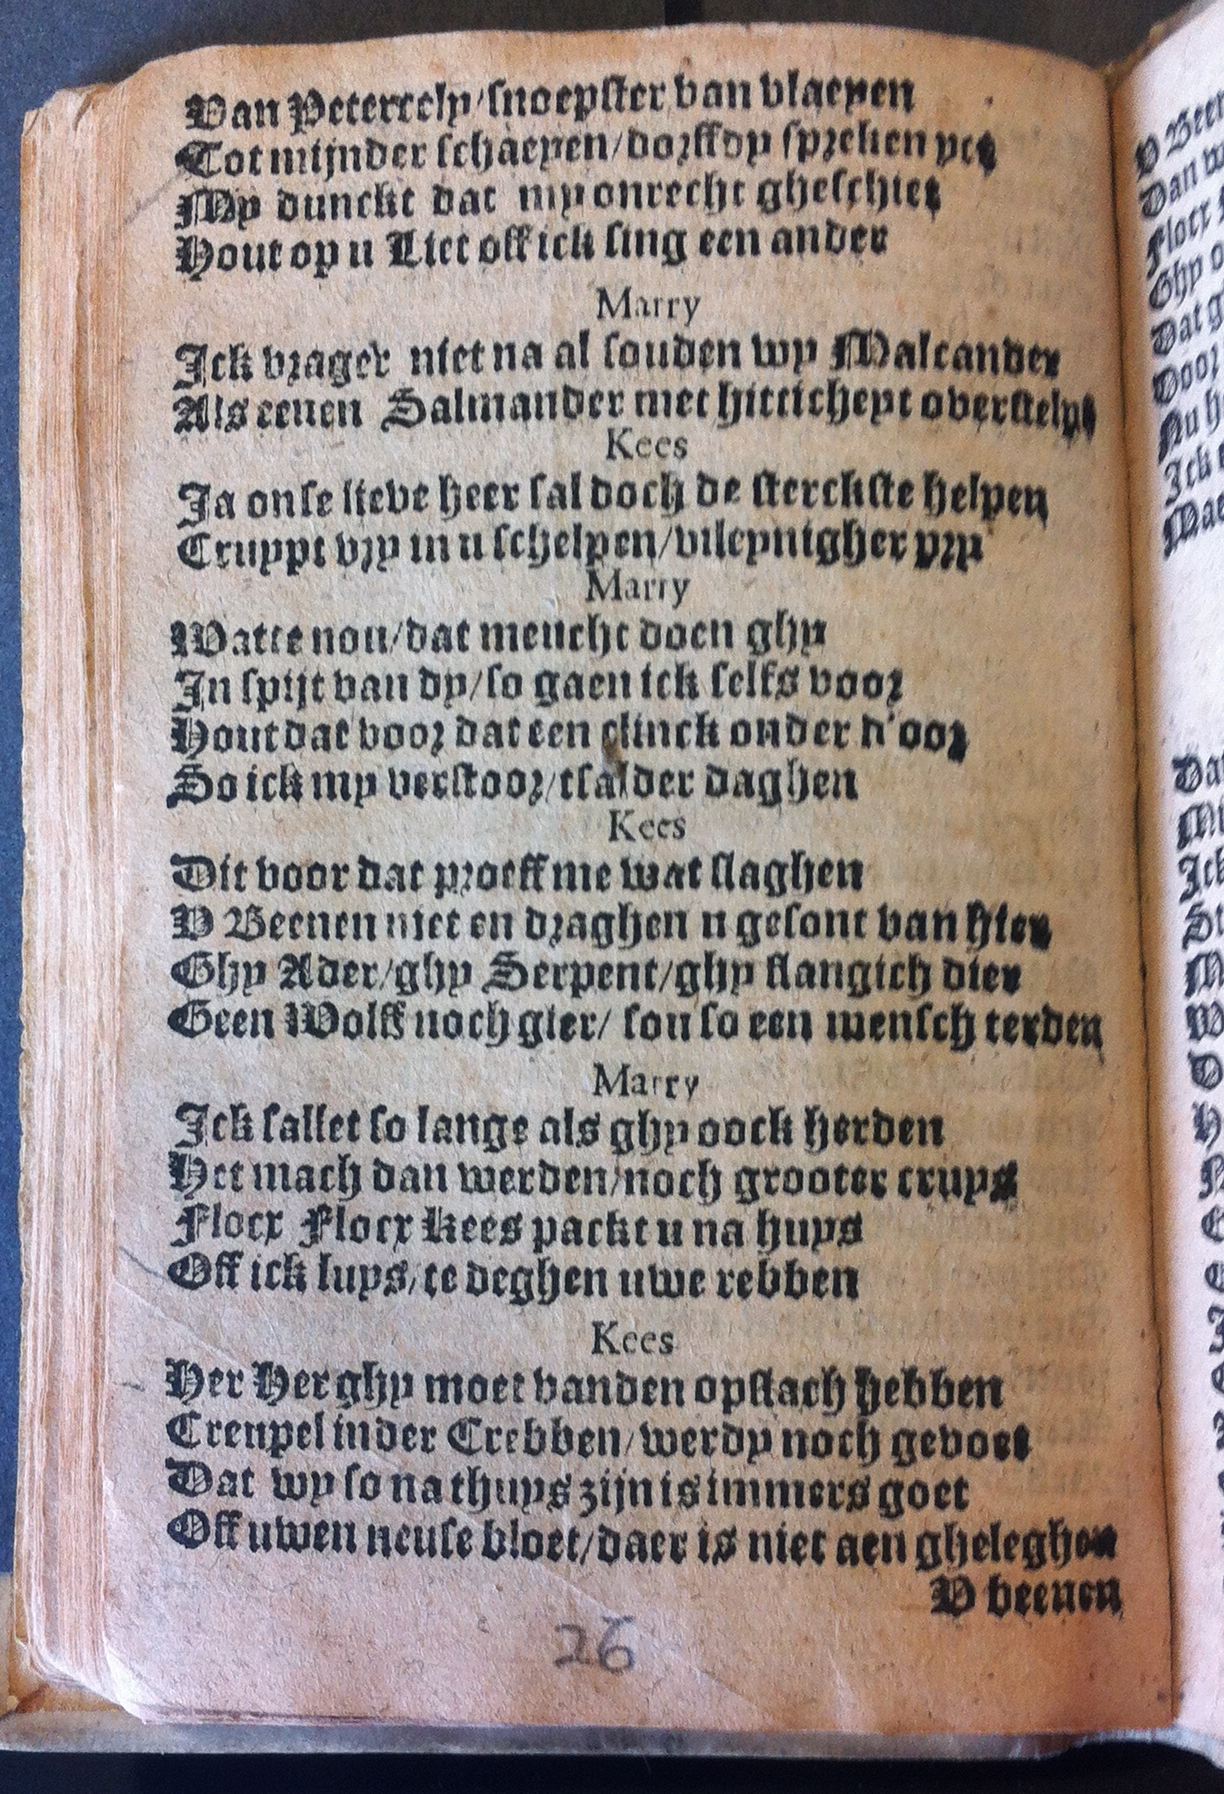 Van Peterecly/snoepster van vlaeyen
Tot mijnder schaeyen/dorffdy spreken yet
My dunckt dat my onrecht gheschiet
Hout op u Liet off ick sing een ander
Marry
Ick vrager niet na al souden wy Malcander
Als eenen Salmander met hitticheyt overstelpt
Kees
Ja onse lieve heer sal doch de sterckste helpen
Cruypt vry in u schelpen/vileynigher pry
Marry
Watte nou/dat meucht doen ghy
In spijt van dy/so gaen ick selfs voor
Hout dat voor dat een clinck onder d'oor
So ick my verstoor/tsalder daghen
Kees
Dit voor dat proeff me wat slaghen
V Beenen niet en draghen u gesont van hier
Ghy Ader/ghy Serpent/ghy slangich dier
Geen Wolff noch gier/ sou so een mensch terden
Marry
Ick sallet so lange als ghy oock herden
Het mach dan werden/noch grooter cruys
Flocx Flocx Kees packt u na huys
Off ick luys/te deghen uwe rebben
Kees
Her Her ghy moet vanden opslach hebben
Creupel inder Crebben/werdy noch gevoet
Dat wy so na thuys zijn is immers goet
Off uwen neuse bloet/daer is niet aen gheleghen
V beenen
26